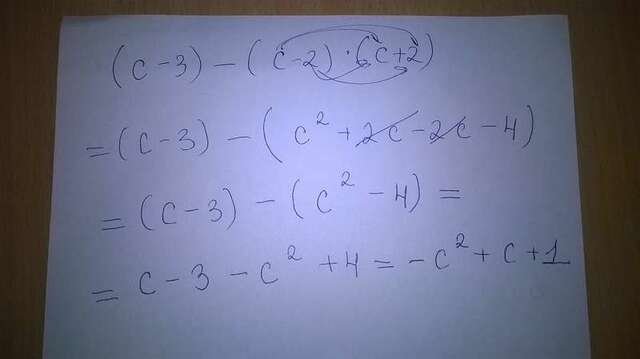 (c-3)-(c-2)·(c+2)
=(c-3)-(c²+2c-2c-4)
=(c-3)-(c²-4)=
=c-3-c²+4=-c²+c+1